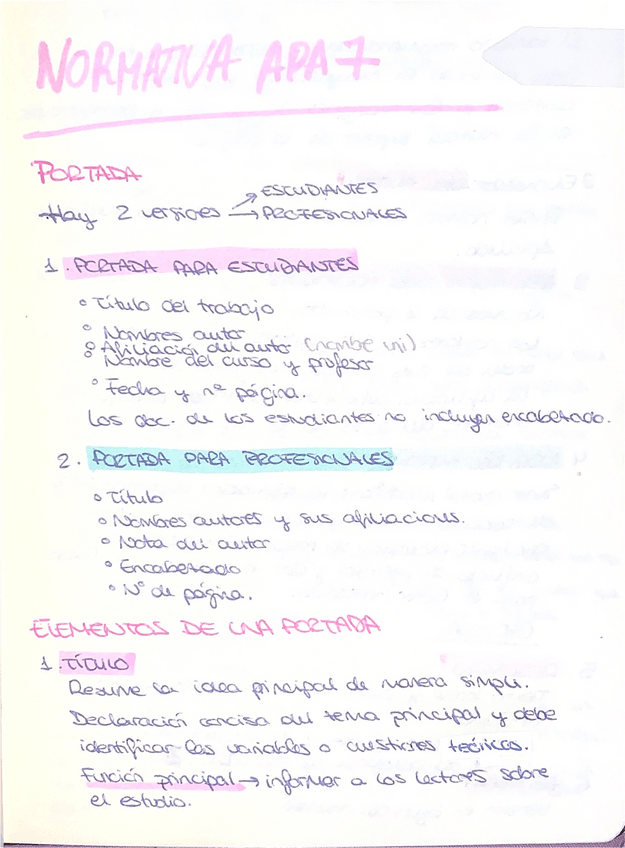 NORMATIVA APA 7
PORTADA
Hay 2 versiones → ESTUDIANTES
→ PROFESIONALES
1. PORTADA PARA ESTUDIANTES
° Título del trabajo
° Nombres autor
° Afiliación del autor (nombre uni)
° Nombre del curso y profesor
° Fecha y nº página.
Los doc. de los estudiantes no incluyen encabezado.
2. PORTADA PARA PROFESIONALES
° Título
° Nombres autores y sus afiliaciones.
° Nota del autor
° Encabezado
° Nº de página.
ELEMENTOS DE UNA PORTADA
1. TÍTULO
Resume la idea principal de manera simple.
Declaración concisa del tema principal y debe
identificar las variables o cuestiones teóricas.
Función principal → informar a los lectores sobre
el estudio.